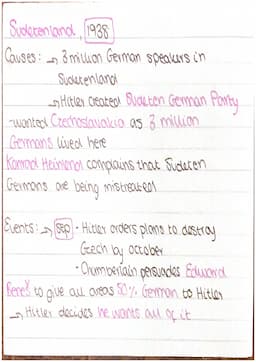 Sudetenland, 1938
Causes: → 3 million German speakers in
Sudetenland
→ Hitler created Sudeten German Party
- wanted Czechoslavakia as 3 million
Germans lived here
Konrad Heinlend complains that Sudeten
Germans are being mistreated
Events: → Sep • Hitler orders plans to destroy
Czech by october
• Chamberlain persuades Edward
Beneš to give all areas 50% German to Hitler
→ Hitler decides he wants all of it